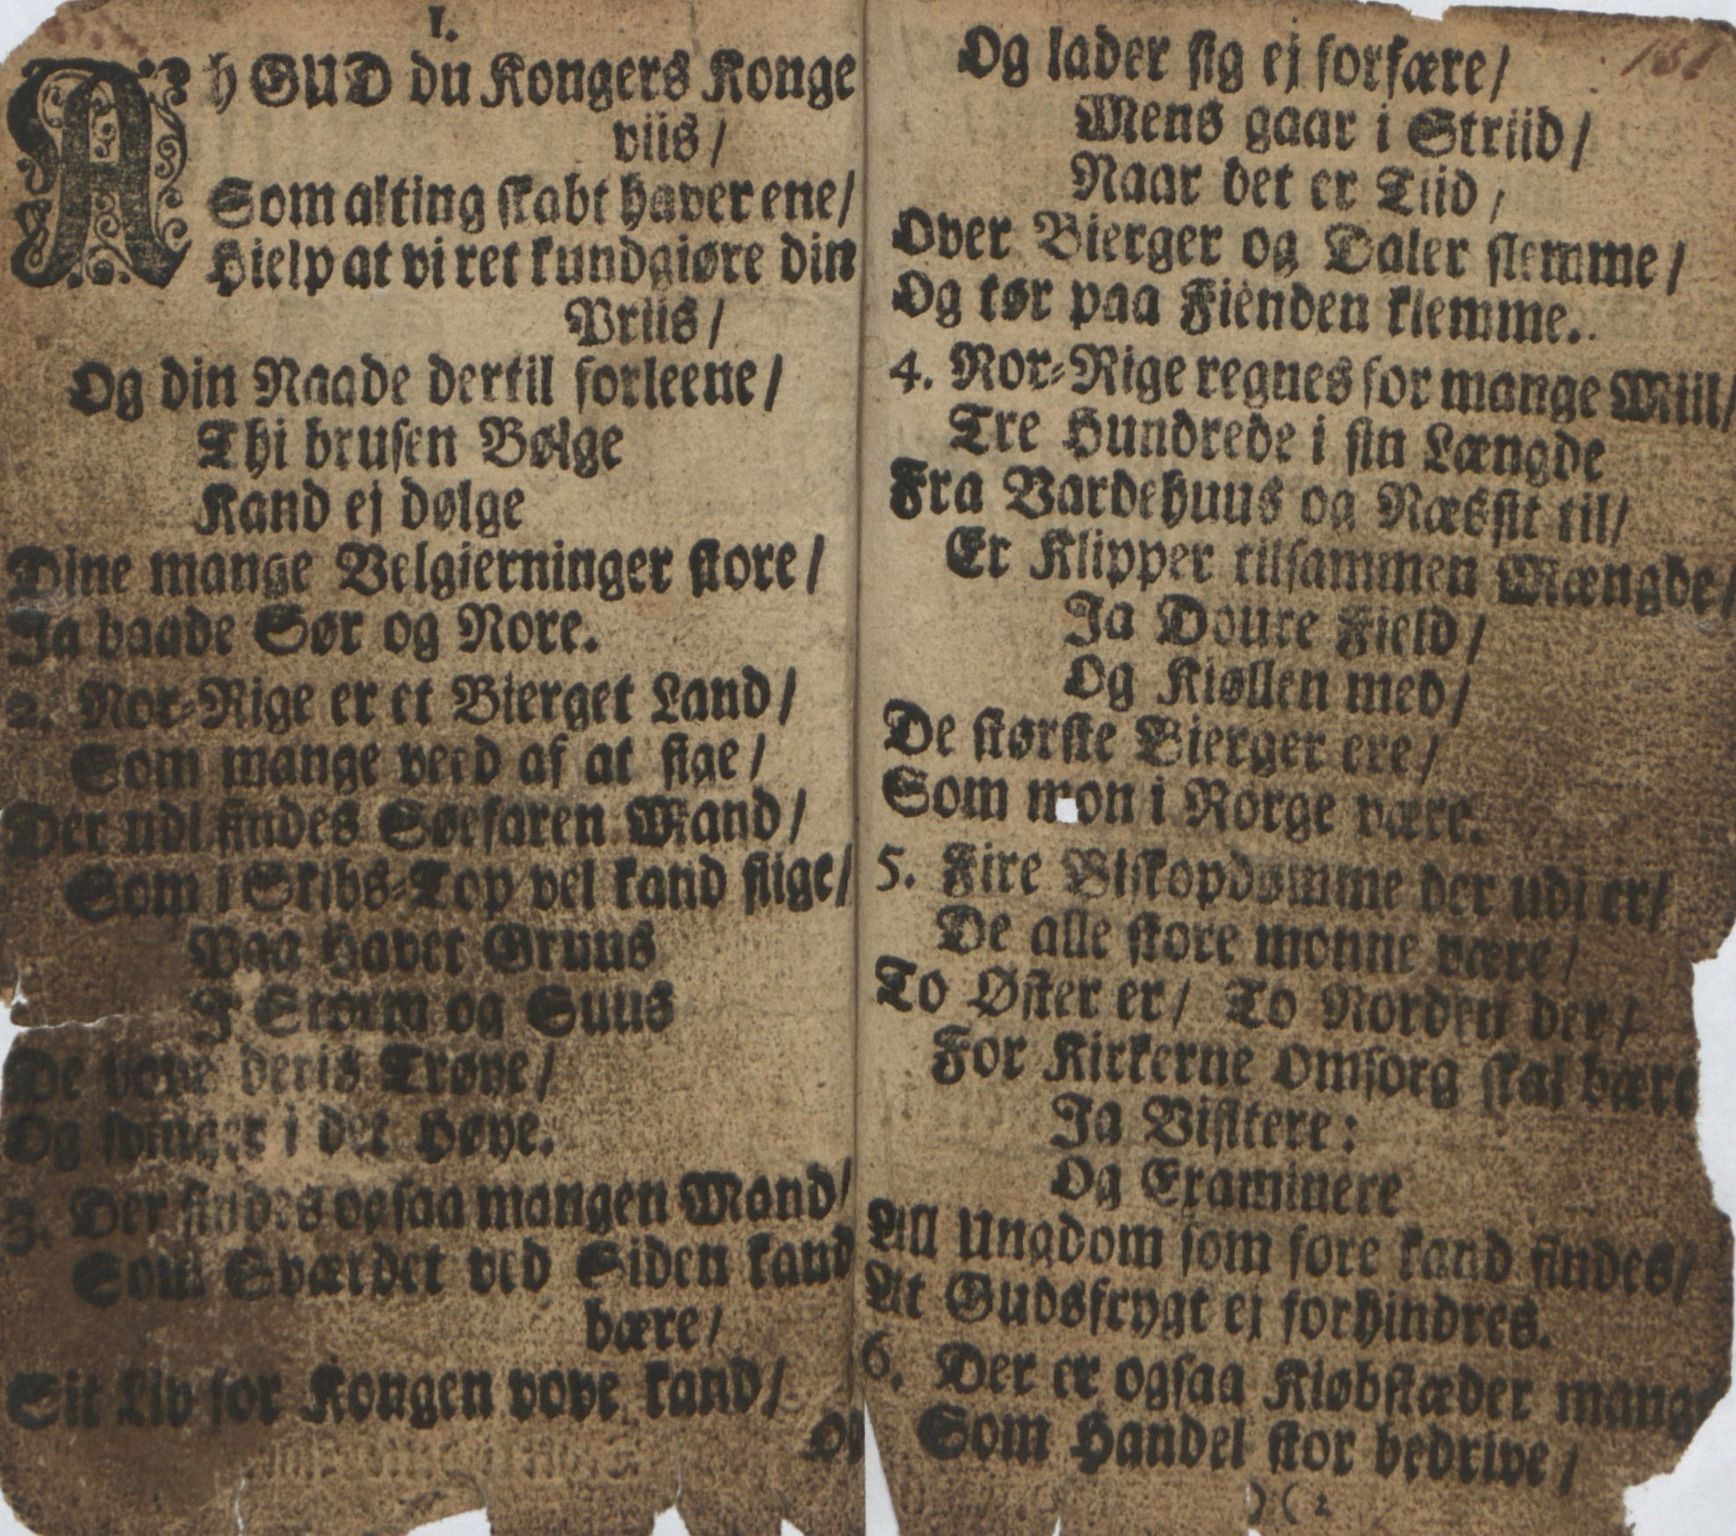 I.
Ah GUD du Kongers Konge
viis/
Som alting skabt haver ene/
Hielp at vi ret kundgiøre din
Priis/
Og din Naade dertil forleene/
Thi brusen Bølge
Kand ej dølge
Dine mange Velgierninger store/
Ja baade Sør og Nore.
2. Nor-Rige er et Bierget Land/
Som mange veed af at sige/
Der udi findes Søefaren Mand/
Som i Skibs-Top vel kand stige/
Paa Havet Gruus
I Storm og Suus
De vove deris Trøye/
Og springer i det Høye.
3. Der findes ogsaa mangen Mand/
Som Sværdet ved Siden kand
bære/
Sit Liv for Kongen vove kand/
Og lader sig ej forfære/
Mens gaar i Striid/
Naar det er Tiid/
Over Bierger og Daler stemme/
Og tør paa Fienden klemme.
4. Nor-Rige regnes for mange Miil/
Tre Hundrede i sin Længde
Fra Vardehuus og Næssit til/
Er Klipper tilsammen Mængde/
Ja Doure Field/
Og Kiøllen med/
De største Bierger ere/
Som mon i Norge være.
5. Fire Biskopdømme der udi er/
De alle store monne være/
To Øster er/ To Norden der/
For Kirkerne Omsorg skal bære
Ja Visitere:
Og Examinere
All Ungdom som fore kand findes/
At Gudsfrygt ej forhindres.
6. Der er ogsaa Kiøbstæder mange
Som Handel stor bedrive/
)( 2